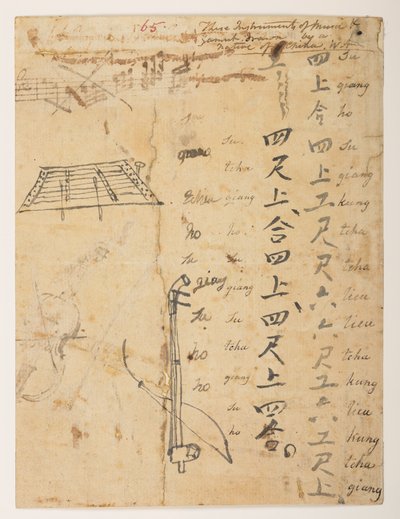 65
These Instruments of Music &
Gamut drawn by a
native of China W.A
四上合四上工尺尺六六尺工六工尺上
su
giang
ho
su
giang
kung
tcha
tcha
lieu
lieu
tcha
kung
lieu
kung
tcha
giang
四尺上合四上四尺上四合。
su
tcha
giang
ho
su
giang
su
tcha
giang
su
ho
ho
su
giang
su
ho
ho